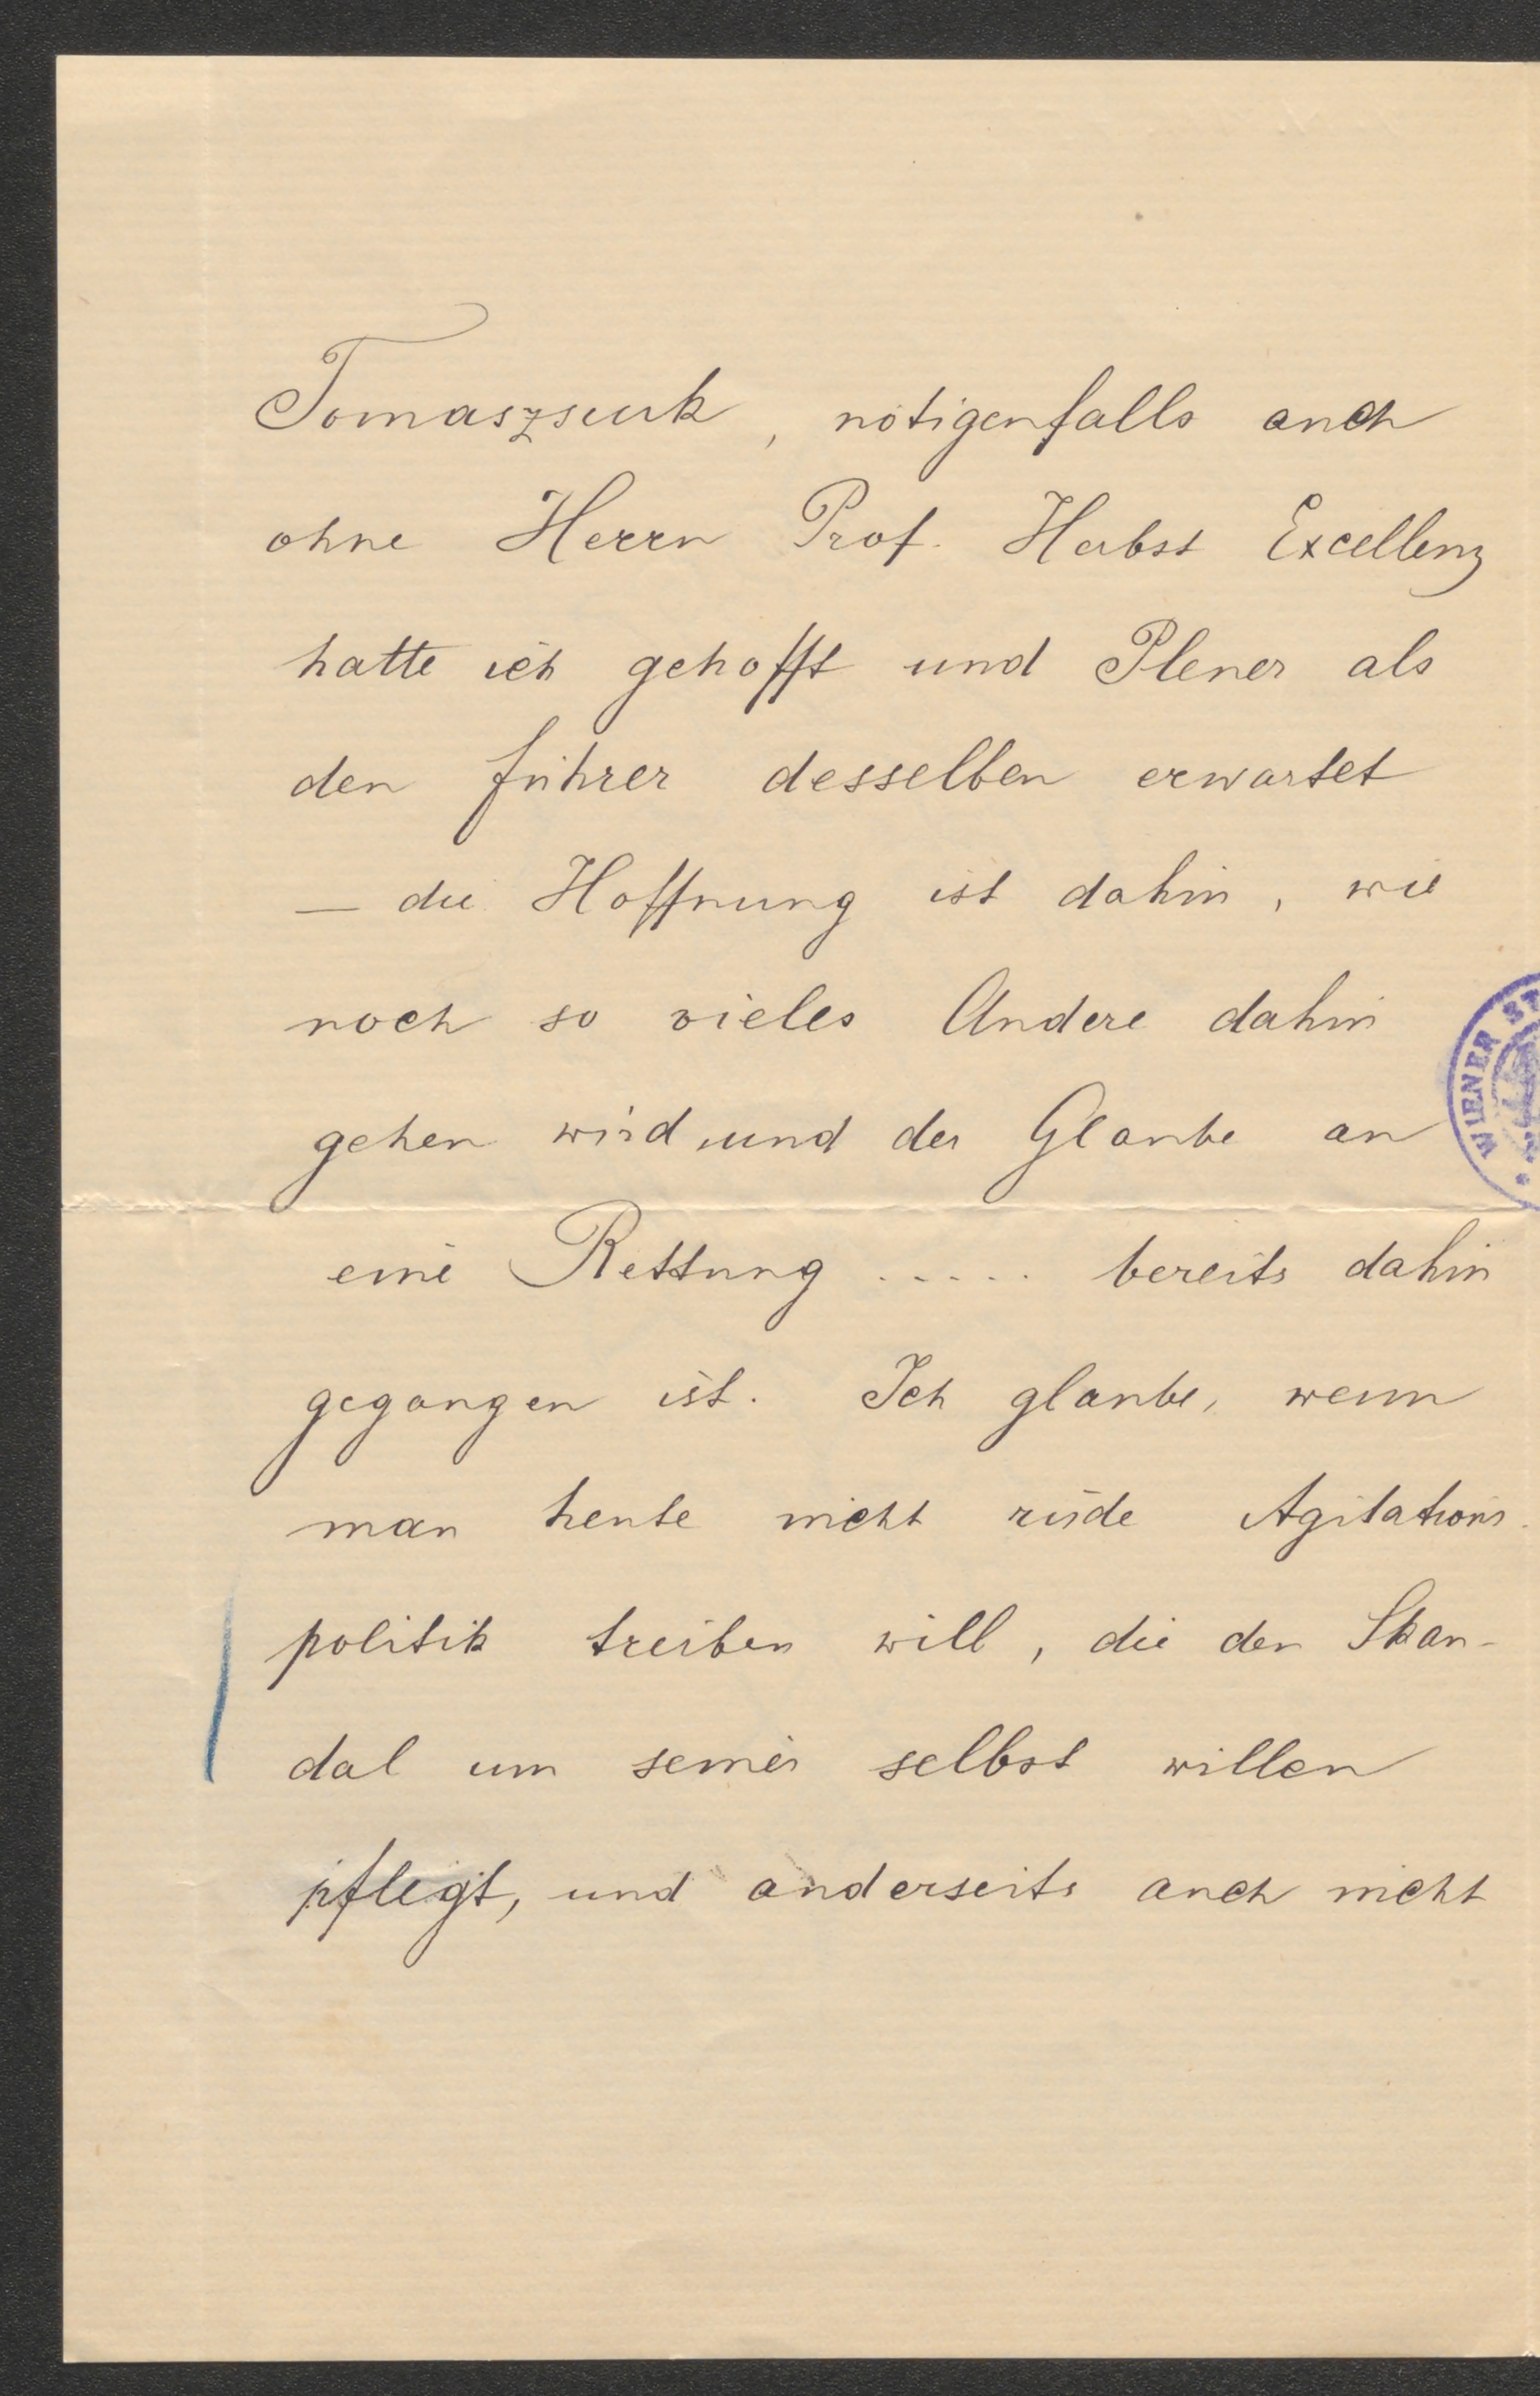 Tomaszsuk, nötigenfalls auch
ohne Herrn Prof. Herbst Excellenz
hatte ich gehofft und Plener als
den Führer desselben erwartet
— die Hoffnung ist dahin, wie
noch so vieles Andere dahin
gehen wird und der Glaube an
eine Rettung ..... bereits dahin
gegangen ist. Ich glaube, wenn
man heute nicht rüde Agitations-
politik treiben will, die den Skan-
dal um seiner selbst willen
pflegt, und anderseits auch nicht
WIENER